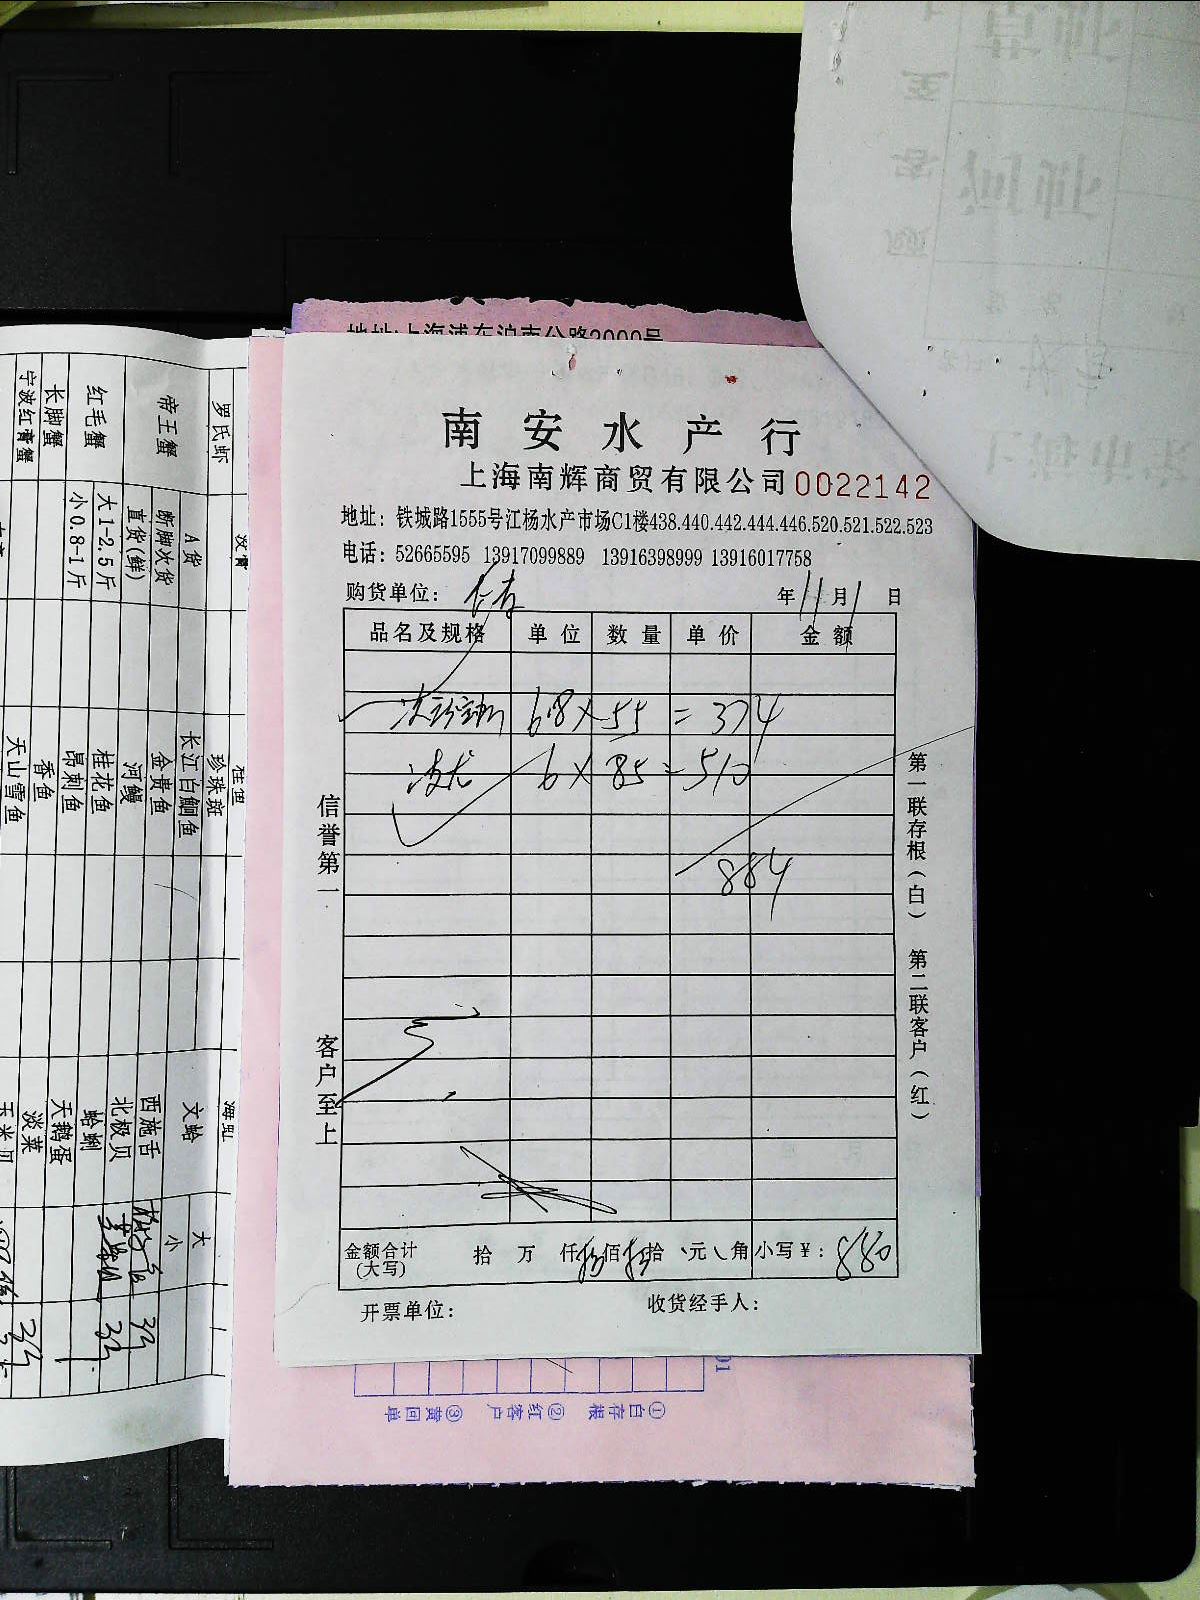 地址:上海浦东沪南公路2000号
南安水产行
上海南辉商贸有限公司 0022142
地址: 铁城路1555号江杨水产市场C1楼438.440.442.444.446.520.521.522.523
电话: 52665595 13917099889 13916398999 13916017758
购货单位: 年 11 月 1 日
品名及规格 单位 数量 单价 金额
6.8 × 55 = 374
6 × 85 = 510
884
金额合计(大写) 拾 万 仟 捌 佰 捌 拾 元 角 小写¥: 880
开票单位: 收货经手人:
信誉第一
客户至上
第一联存根(白)
第二联客户(红)
①白存根 ②红客户 ③黄回单
罗氏虾
帝王蟹 A货
断脚次货
直货(鲜)
红毛蟹 大1-2.5斤
小0.8-1斤
长脚蟹
宁波红膏蟹
桂鱼
珍珠斑
长江白鮰鱼
金贵鱼
河鳗
桂花鱼
昂刺鱼
香鱼
天山雪鱼
文蛤 大
小
西施舌
北极贝
蛤蜊
天鹅蛋
淡菜
玉米贝